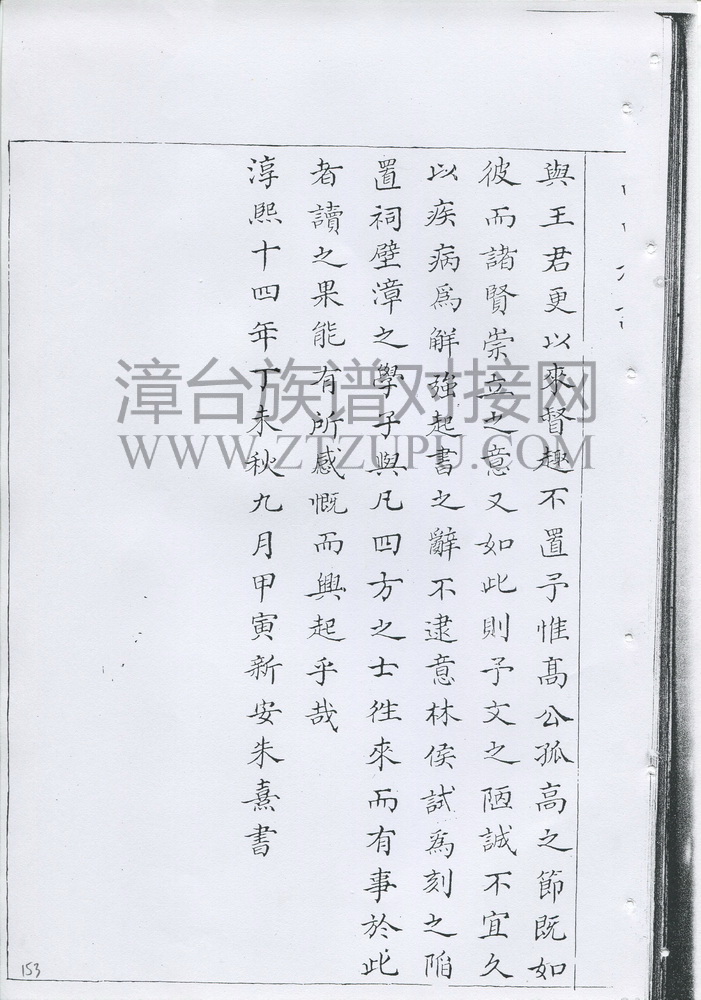 與王君更以來督趣不置予惟髙公孤高之節既如
彼而諸賢崇立之意又如此則予文之陋誠不宜久
以疾病爲解強起書之辭不逮意林侯試爲刻之陷
置祠壁漳之學子與凡四方之士徃來而有事於此
者讀之果能有所感慨而興起乎哉
淳熙十四年丁未秋九月甲寅新安朱熹書
漳台族谱对接网
WWW.ZTZUPU.COM
153